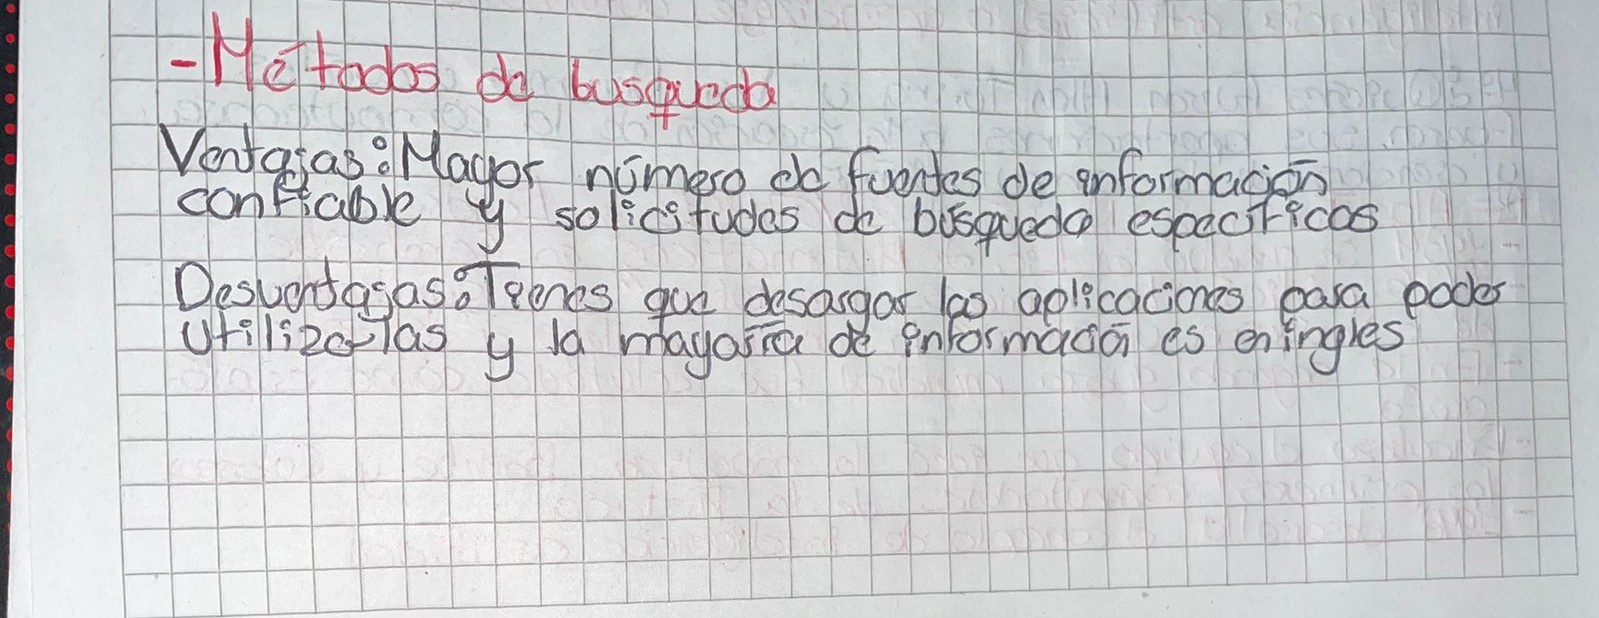 - Métodos de busqueda
Ventajas: Mayor número de fuentes de información
confiable y solicitudes de búsqueda especificas
Desventajas: Tienes que desargar las aplicaciones para poder
utilizarlas y la mayoría de informació es en ingles